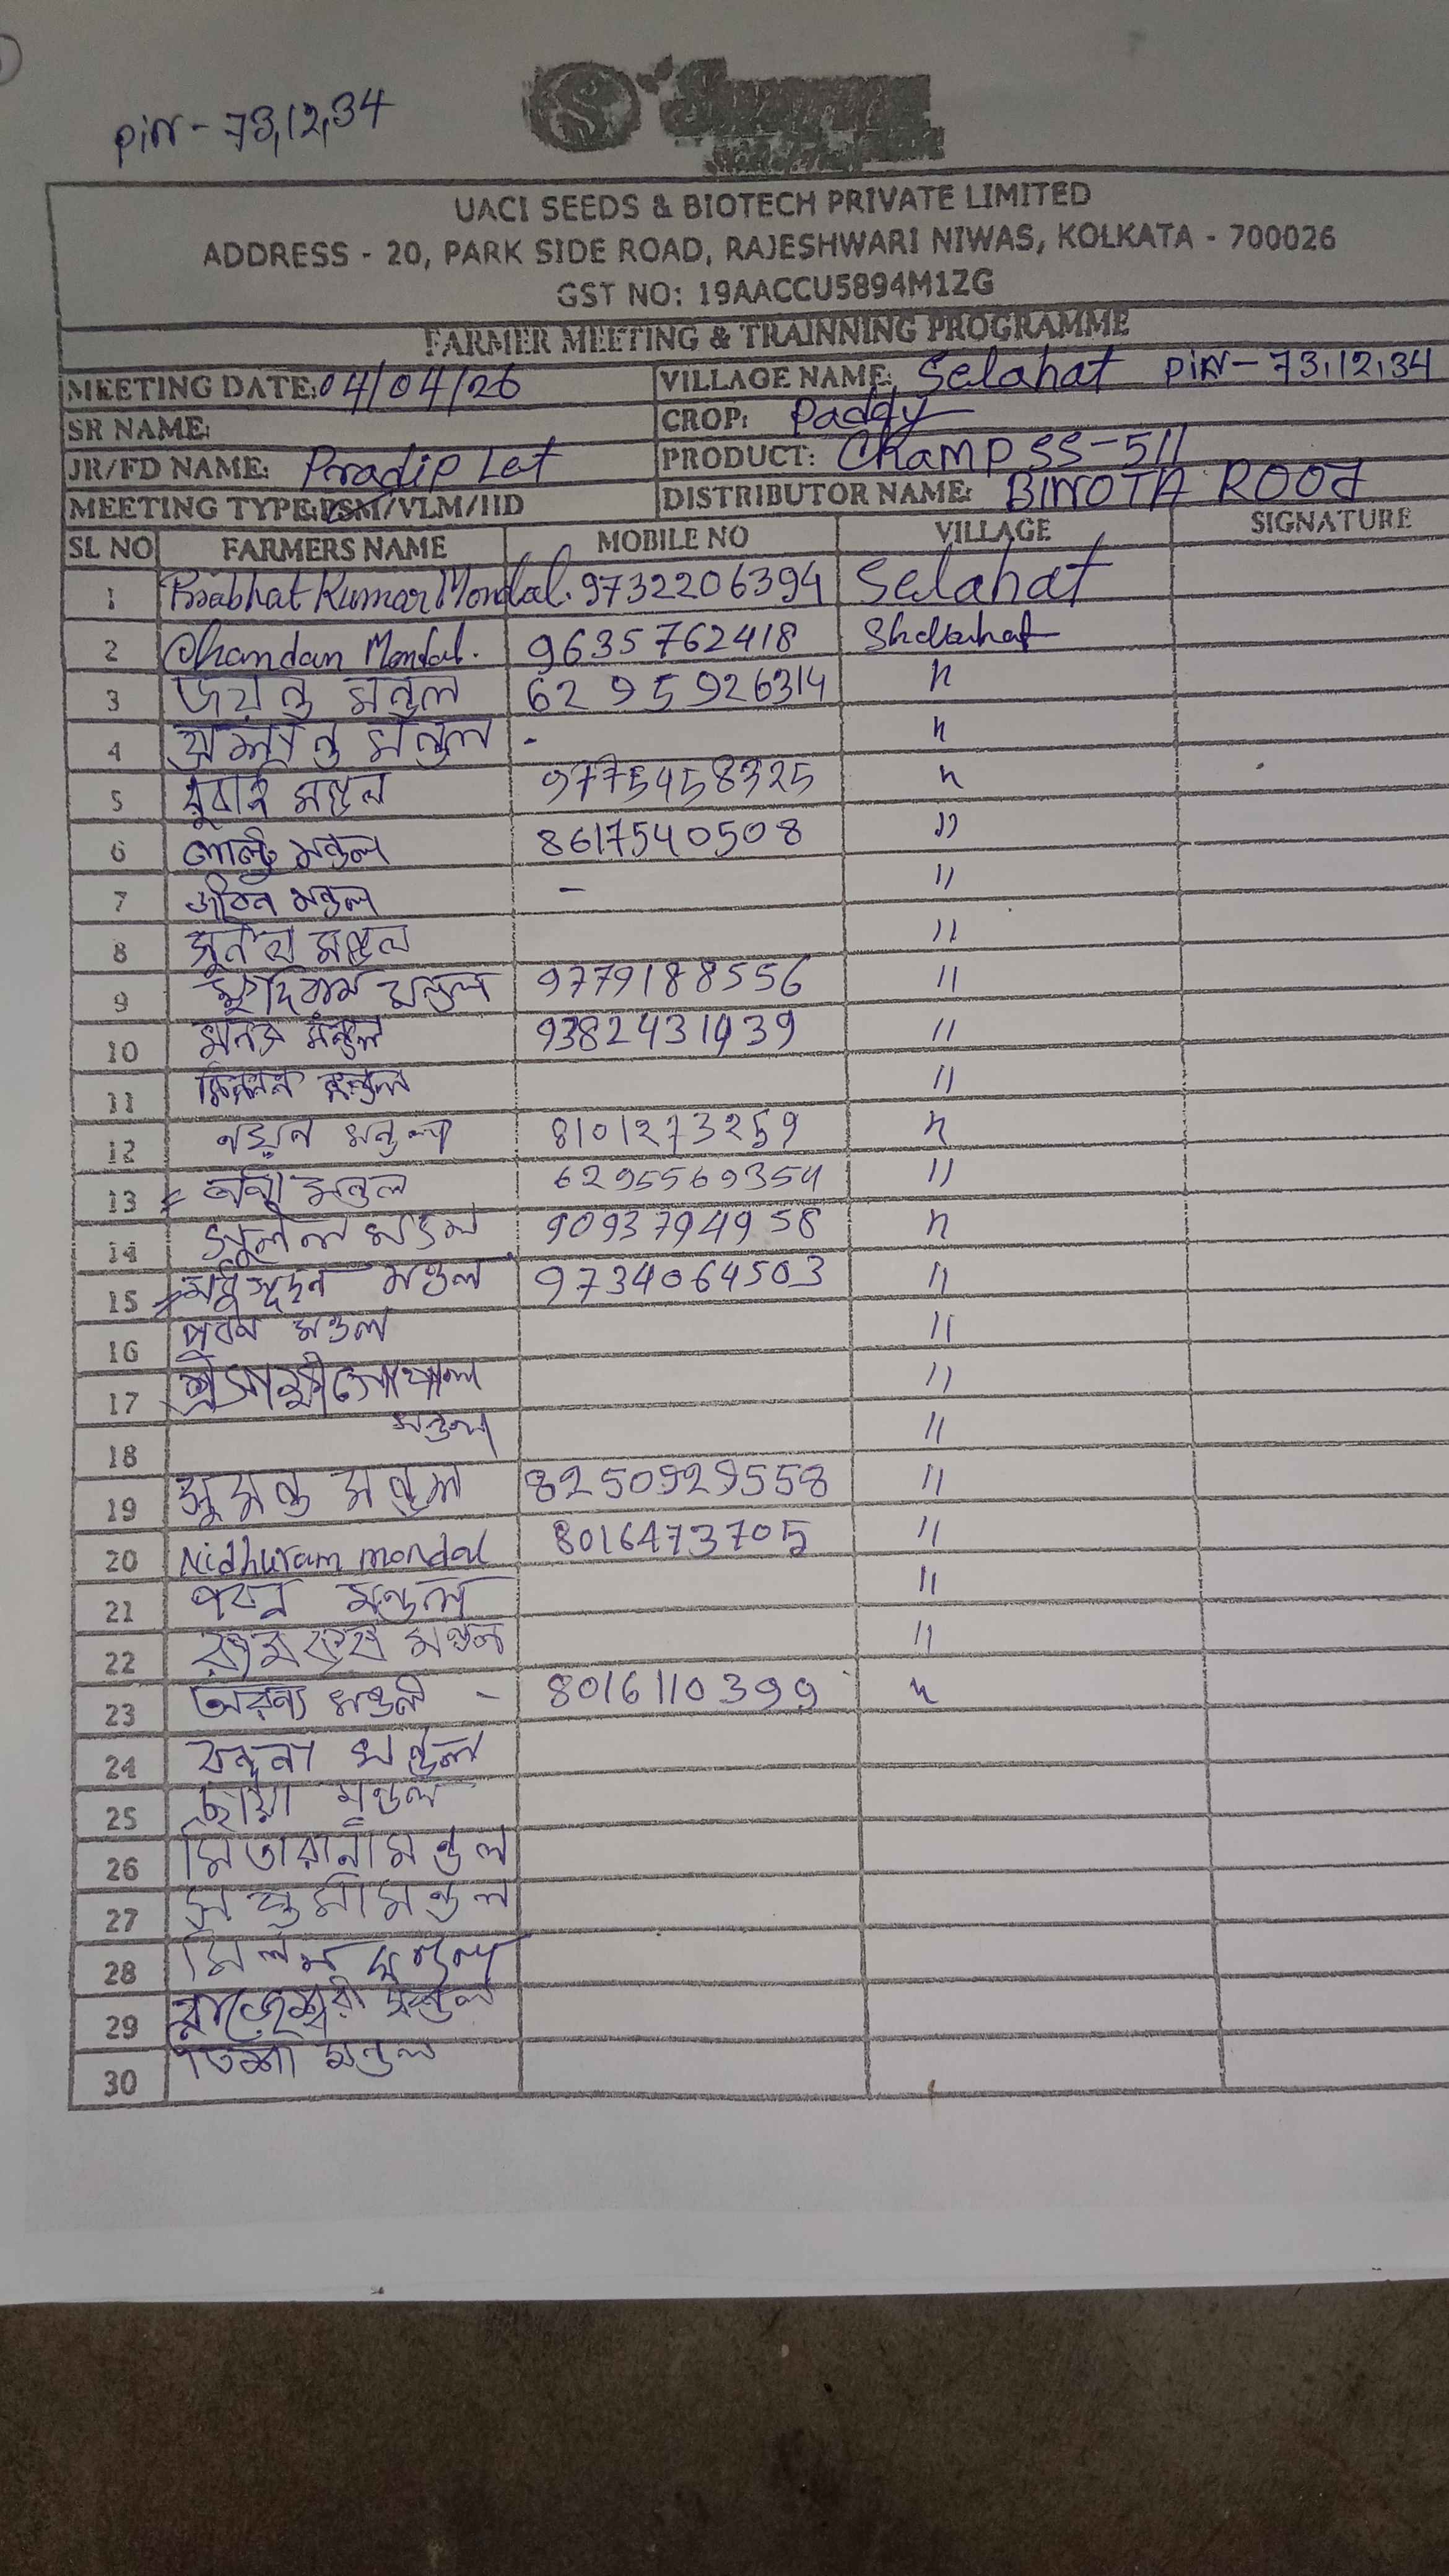 PIN - 73,12,34
UACI SEEDS & BIOTECH PRIVATE LIMITED
ADDRESS - 20, PARK SIDE ROAD, RAJESHWARI NIWAS, KOLKATA - 700026
GST NO: 19AACCU5894M1ZG
FARMER MEETING & TRAINNING PROGRAMME
MEETING DATE: 04/04/26 VILLAGE NAME: Selahat PIN - 73,12,34
SR NAME: CROP: Paddy
JR/FD NAME: Pradip Let PRODUCT: Champ SS-511
MEETING TYPE: PSM/VLM/IID DISTRIBUTOR NAME: BINOTA ROOJ
SL NO FARMERS NAME MOBILE NO VILLAGE SIGNATURE
1 Prabhat Kumar Mondal. 9732206394 Selahat
2 Chandan Mondal. 9635762418
3 জয়ন্ত মন্ডল 6295926314 "
4 মন্ডল - "
5 মন্ডল 9775458325 "
6 লাল্টু মন্ডল 8617540508 "
7 জীবন মন্ডল - "
8 মন্ডল "
9 ক্ষুদিরাম মন্ডল 9779188556 "
10 মন্ডল "
11 মন্ডল "
12 নয়ন মন্ডল 8101273259 "
13 মন্ডল 6295569354 "
14 মন্ডল 9093794958 "
15 মধুসূদন মণ্ডল 9734064503 "
16 মন্ডল "
17 শ্রী সাক্ষীগোপাল "
18 মন্ডল "
19 সুমন্ত মন্ডল 8250929558 "
20 Nidhuram mondal 8016473705 "
21 পবন মন্ডল "
22 রামকৃষ্ণ মন্ডল "
23 অরন্য মন্ডল - 8016110399 "
24 বন্দনা মন্ডল
25 ছায়া মন্ডল
26 মিতারানী মন্ডল
27 মন্ডল
28 মিলন মন্ডল
29 রাজেশ্বরী মন্ডল
30 মন্ডল